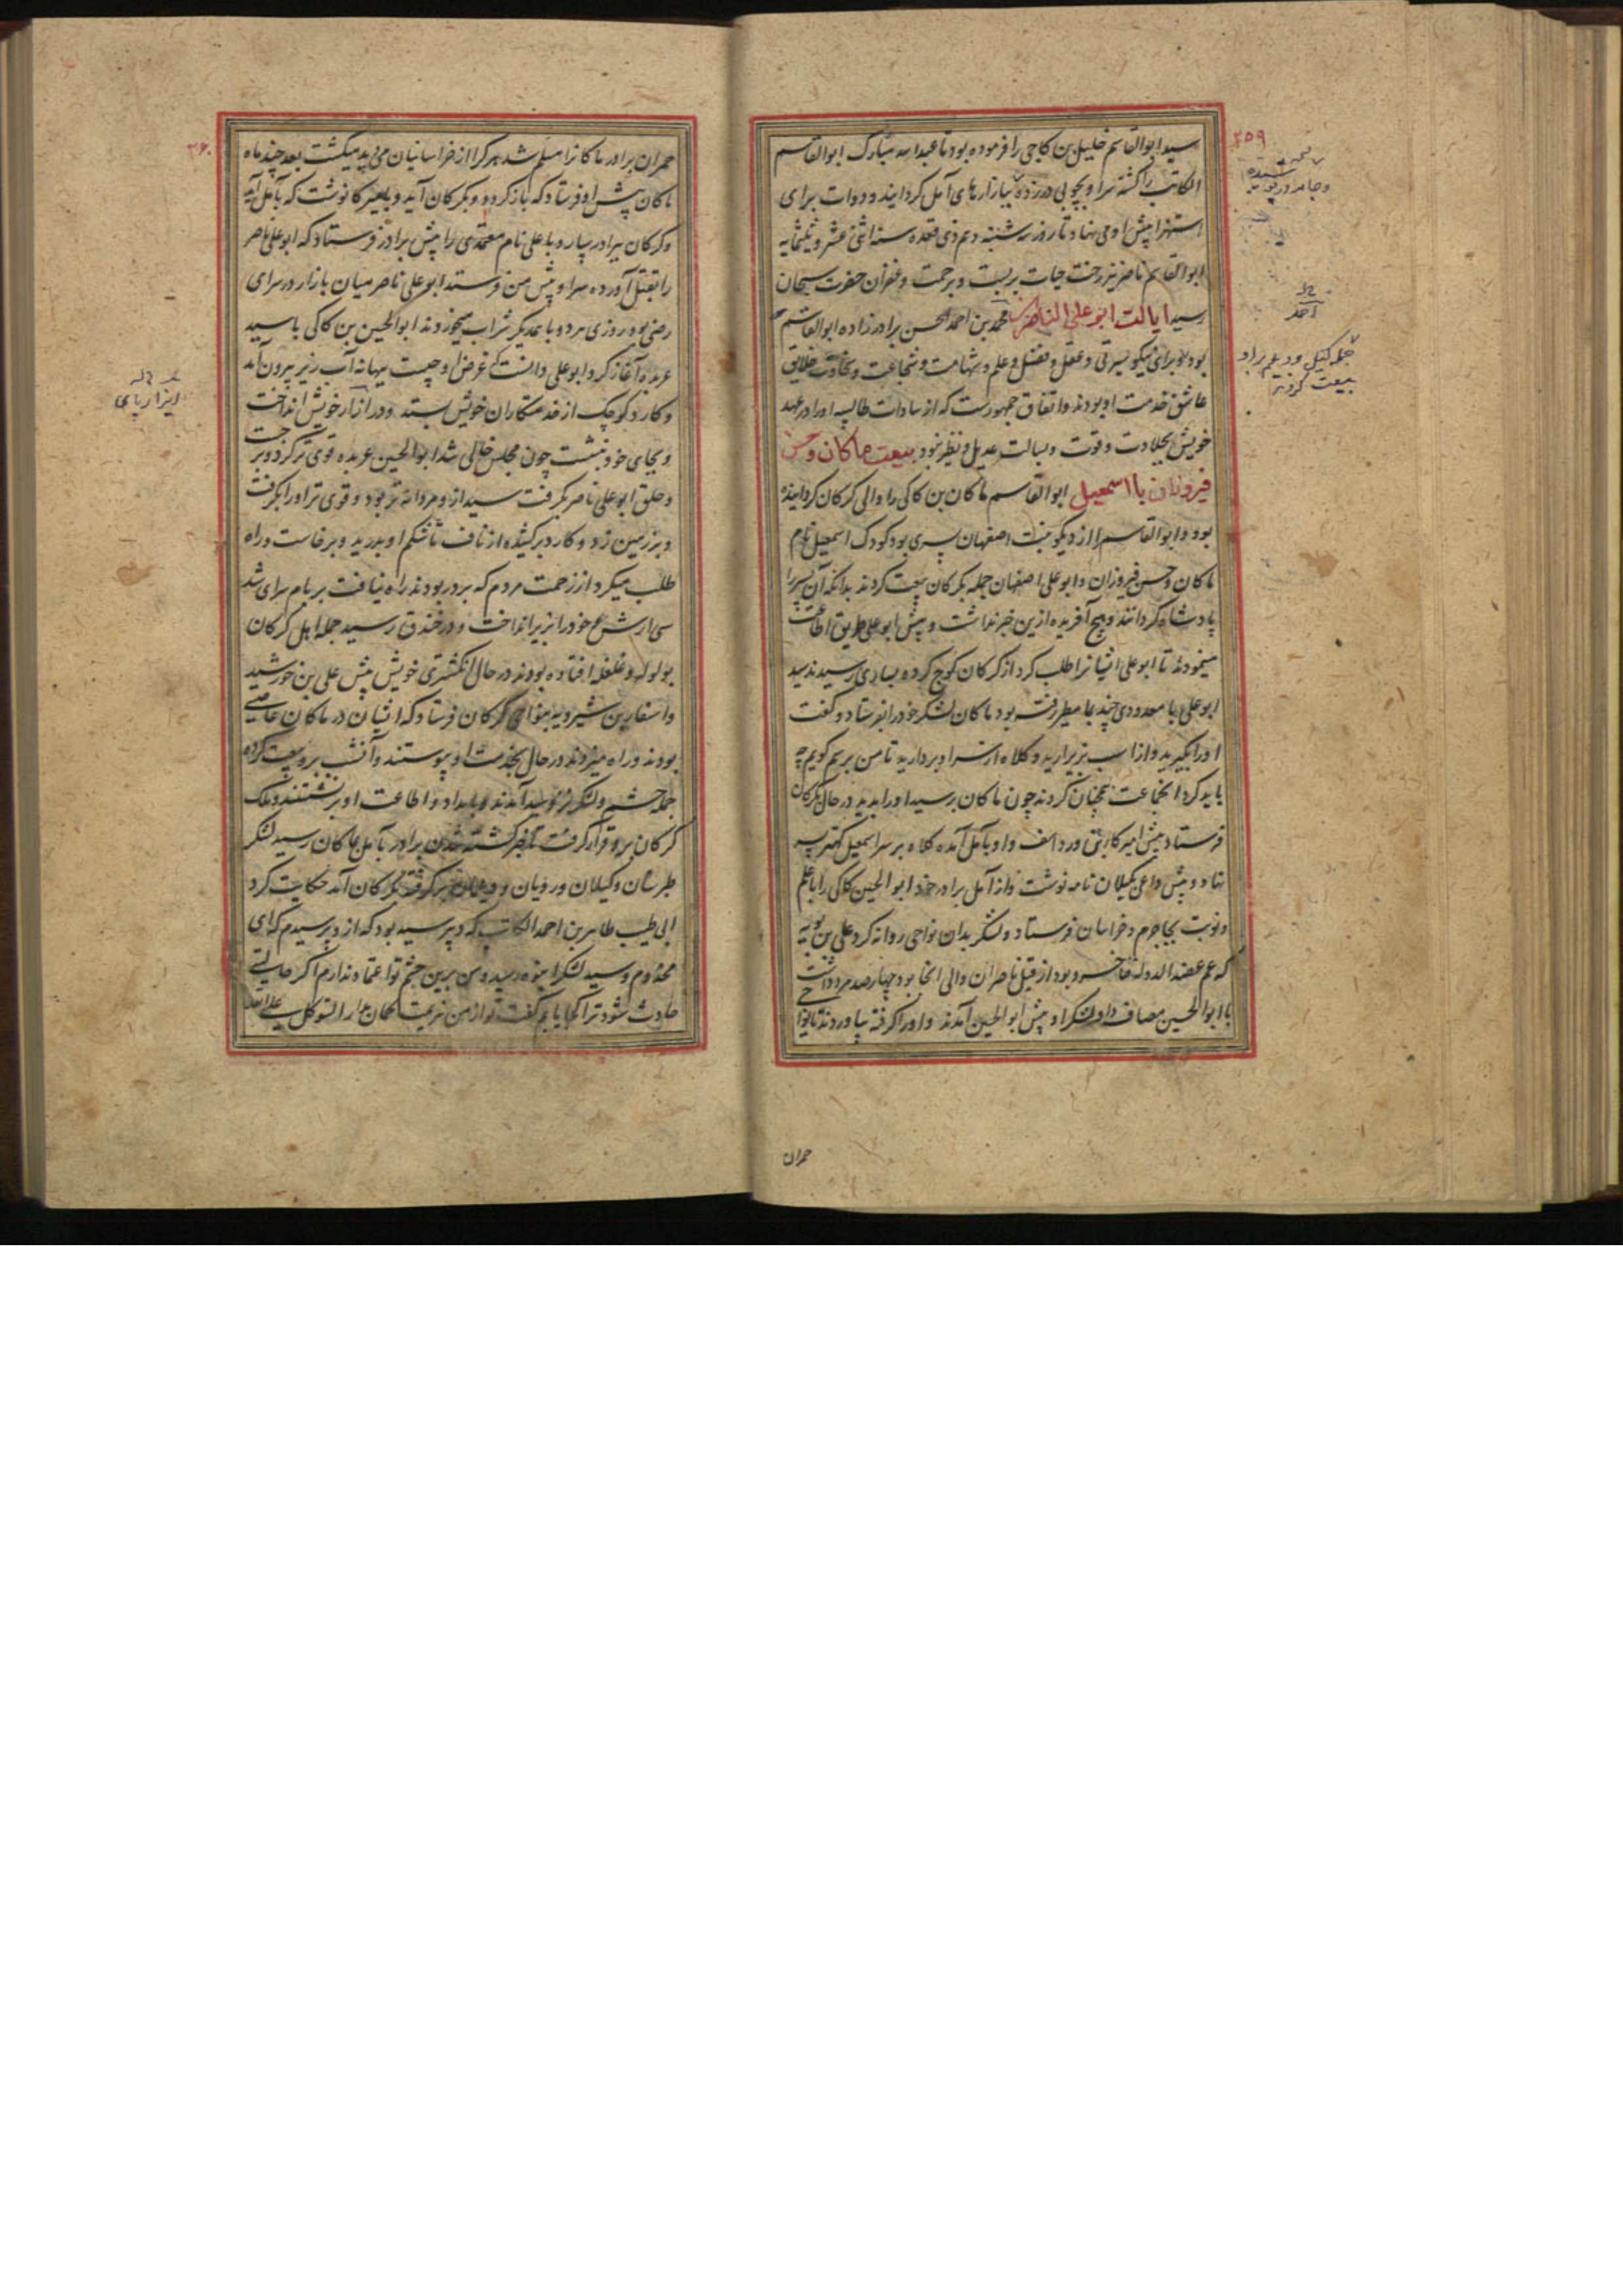 سید ابوالقاسم خلیل بن کاجی را فرموده بود تا عبدالله مبارک ابوالقاسم
الکاتب را کشته سر او بچوبی در زده ببازارهای آمل گردانیدند و دوات برای
استهزا پیش او می نهاد تا روز سه شنبه دهم ذی قعده سنه اثنی عشر و ثلثمایه
ابوالقاسم ناصر نیز رخت حیات بربست و برحمت و غفران حضرت سبحان
رسید ایالت ابو علی الناصر محمد بن احمد الحسن برادر زاده ابوالقاسم
بود و برای نیکو سیرتی و عقل و فضل و علم و شهامت و شجاعت و سخاوت خلایق
عاشق خدمت او بودند و اتفاق جمهورست که از سادات طالبیه او را در عهد
خویش بجلادت و قوت و بسالت عدیل و نظیر نبود بیعت ماکان و حسن
فیروزان با اسمعیل ابوالقاسم ماکان بن کاکی را والی گرگان گردانیده
بود و ابوالقاسم را از دیکو بنت اصفهان پسری بود کودک اسمعیل نام
ماکان و حسن فیروزان و ابو علی اصفهان جمله بگرگان بیعت کردند بدانکه آن پسر را
پادشاه گردانند و هیچ آفریده ازین خبر نداشت و پیش ابو علی طریق اطاعت
مینمودند تا ابو علی ایشانرا طلب کرد از گرگان کوچ کرده بساری رسیدند سید
ابو علی با معدودی چند بمامطیر رفته بود ماکان لشکر خود را بفرستاد و گفت
او را بگیرید و از اسب بزیر آرید و کلاه از سر او بردارید تا من برسم گویم چه
باید کرد انجماعت همچنان کردند چون ماکان برسید او را بدید در حال بگرگان
فرستاد پیش امیرکا بئی ورداسف و او بآمل آمده کلاه بر سر اسمعیل کهتر پسر
نهاد و پیش داعی بگیلان نامه نوشت و از آمل برادر خود ابو الحسین کاکی را با علم
و نوبت بجاجرم و خراسان فرستاد و لشکر بدان نواحی روانه کرد علی بن بویه
که عم عضدالدوله فناخسرو بود از قبل ناصران والی انجا بود چهارصد مرد داشت
با ابو الحسین مصاف داد لشکر او پیش ابو الحسین آمدند و او را گرفته بیاوردند تا نوا
حمران
۲۵۹
شنیده
احمد
جمله گیلی و دیلم برو
بیعت کردند
حمران برادر ماکانرا مسلم شد هر کرا از خراسانیان می دید میکشت بعد چند ماه
ماکان پیش او فرستاد که باز گردد و بگرگان آید و بامیرکا نوشت که بآمل آید
و گرگان ببرادر سپارد با علی نام معتمدی را پیش برادر فرستاد که ابو علی ناصر
را بقتل آورده سر او پیش من فرستد ابو علی ناصر میان بازار در سرای
رضی بود روزی هر دو با همدیگر شراب میخوردند ابو الحسین بن کاکی با سید
عربده آغاز کرد ابو علی دانست که غرض او چیست ببهانه آب ریز بیرون آمد
و کارد کوچک از خدمتکاران خویش بستد و در ازار خویش انداخت
و بجای خود بنشست چون مجلس خالی شد ابو الحسین عربده قوی تر کرد و بر جست
و حلق ابو علی ناصر بگرفت سید ازو مردانه تر بود و قوی تر او را بگرفت
و بر زمین زد و کارد برکشیده از ناف تا شکم او بدرید و برخاست و راه
طلب میکرد از زحمت مردم که بر در بودند راه نیافت بر بام سرای شد
سی ارش خود را بزیر انداخت و در خندق رسید جمله اهل گرگان
بولوله و غلغله افتاده بودند در حال انگشتری خویش پیش علی بن خورشید
و اسفار بن شیرویه بنواحی گرگان فرستاد که ایشان در ماکان عاصی
بودند و راه میزدند در حال بخدمت او پیوستند و آنشب برو بیعت کرده
جمله حشم و لشکر نزد سید آمدند و بامداد و اطاعت او برنشستند و ملک
گرگان برو قرار گرفت خبر کشته شدن برادر بآمل بماکان رسید لشکر
طبرستان و گیلان و رویان و دیلمان برگرفته بگرگان آمد حکایت کرد
ابی طیب طاهر بن احمد الکاتب که دبیر سید بود که ازو پرسیدم که ای
مخدوم و سید لشکر انبوه رسید و من برین حشم تو اعتماد ندارم اگر حالتی
حادث شود ترا کجا یابم گفت تو از من هزیمت گمان مدار التوکل علی الله
۲۶۰